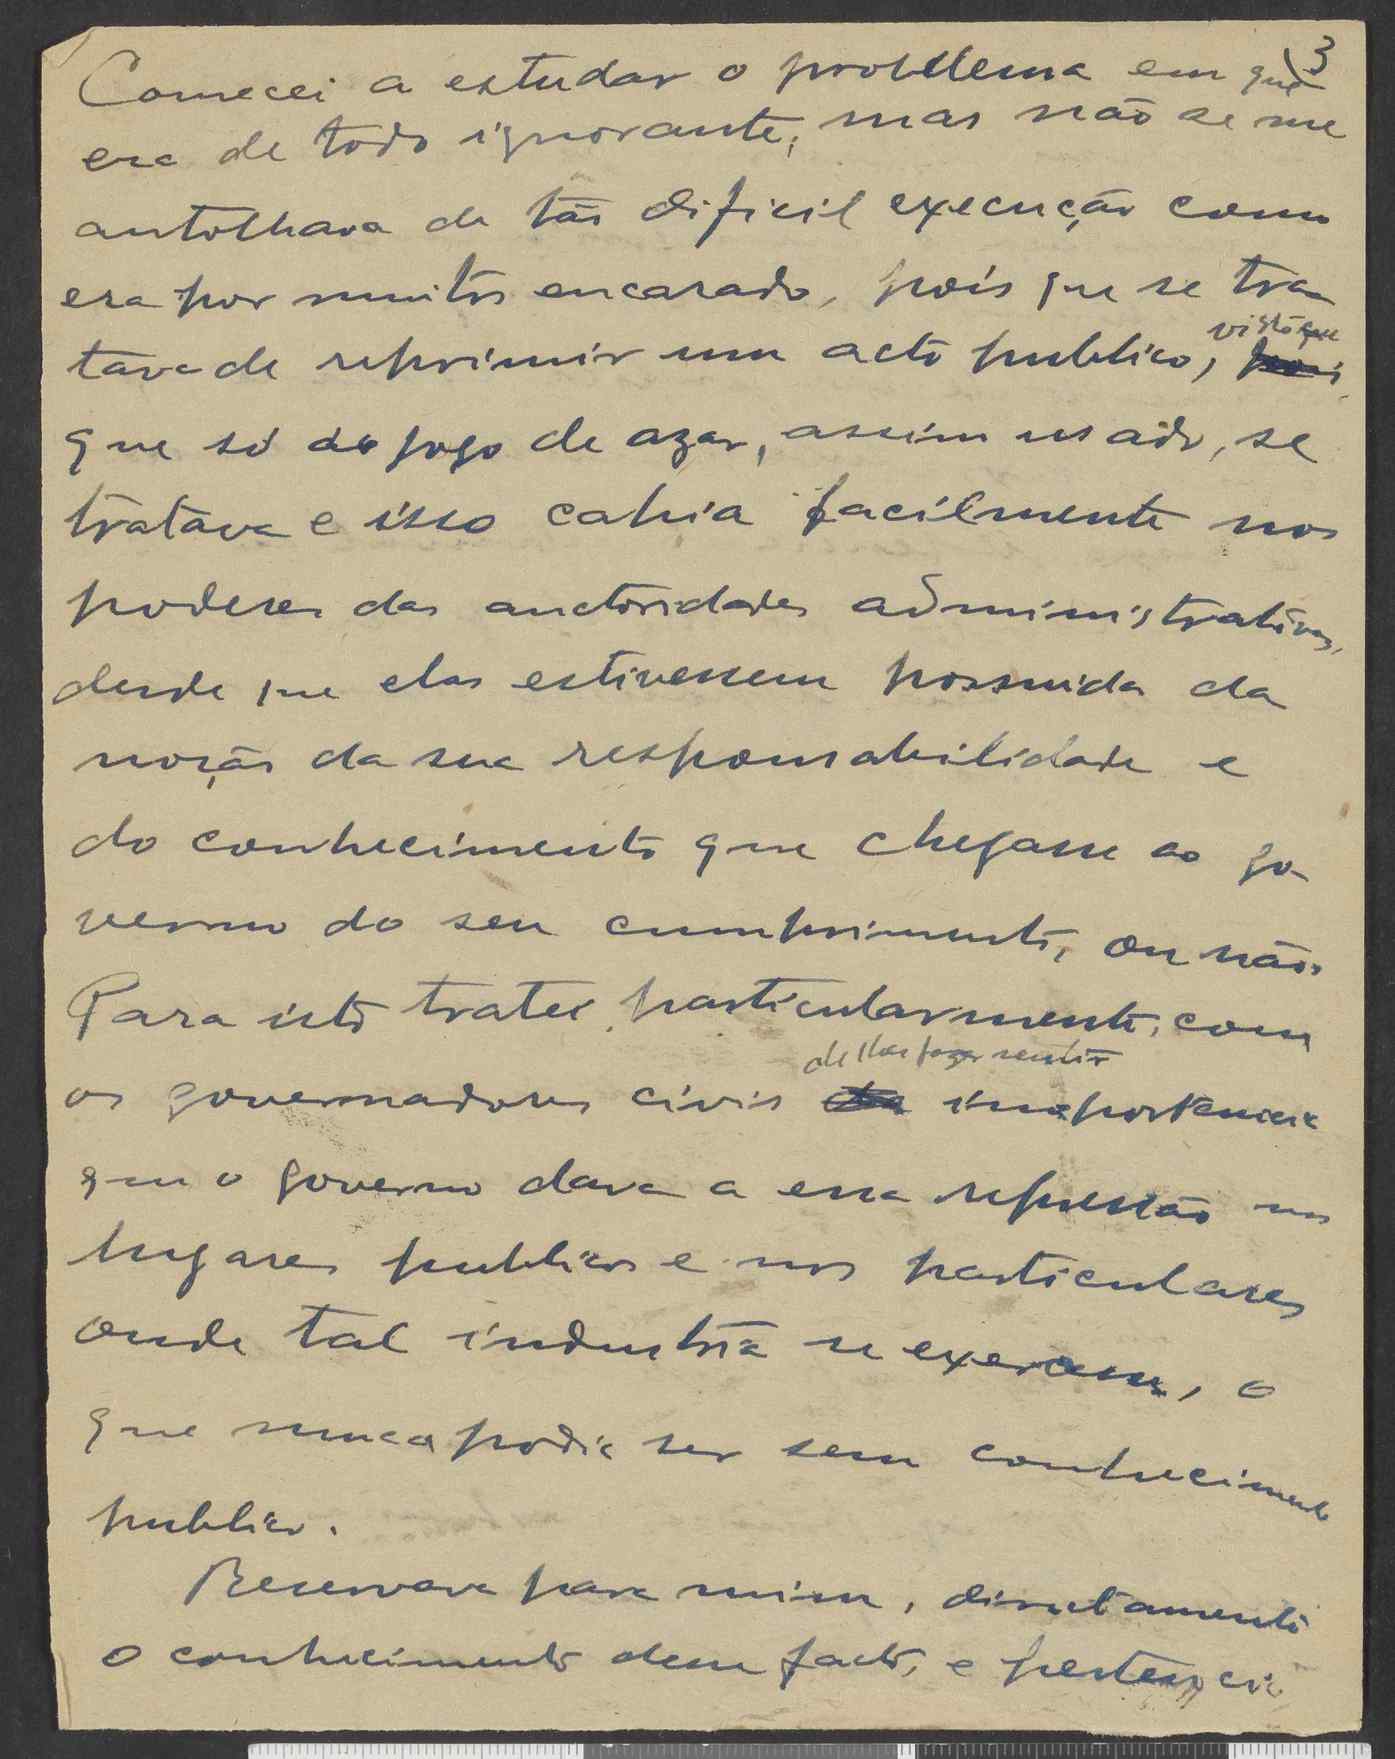 3
Comecei a estudar o problema em que
era de todo ignorante, mas não se me
antolhava de tão dificil execução como
era por muitos encarado, pois que se tra-
tava de reprimir um acto publico, visto que pois
que só do jogo de azar, assim usado, se
tratava e isso cahia facilmente nos
poderes das auctoridades administrativas,
desde que elas estivessem possuida da
noção da sua responsabilidade e
do conhecimento que chegasse ao go-
verno do seu cumprimento, ou não.
Para isto tratei particularmente, com
de lhes fazer sentir
os governadores civis importancia
que o governo dava a essa repressão nos
lugares publicos e nos particulares
onde tal industria se exercesse, o
que nunca podia ser sem conhecimento
publico.
Reservava para mim, directamente
o conhecimento desse facto, e pertencia